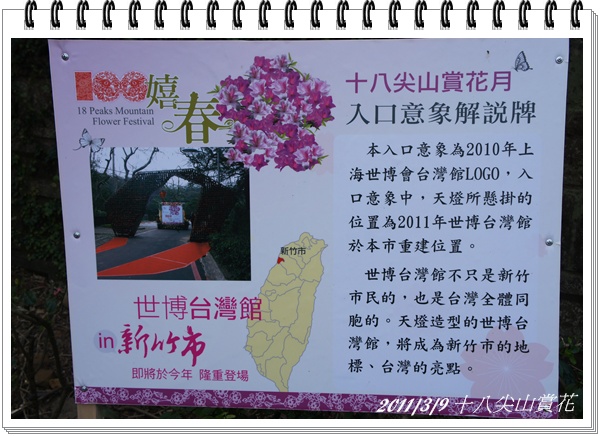 100嬉春
18 Peaks Mountain
Flower Festival
十八尖山賞花月
入口意象解說牌
本入口意象為2010年上
海世博會台灣館LOGO,入
口意象中,天燈所懸掛的
位置為2011年世博台灣館
於本市重建位置。
世博台灣館不只是新竹
市民的,也是台灣全體同
胞的。天燈造型的世博台
灣館,將成為新竹市的地
標、台灣的亮點。
新竹市
世博台灣館
in 新竹市
即將於今年 隆重登場
2011/3/9 十八尖山賞花